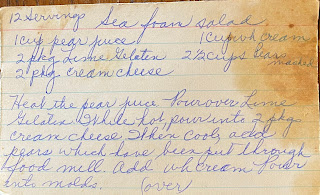 12 Servings Sea foam salad
1 cup pear juice 1 cup wh cream
2 pkg Lime Gelaten 2 1/2 cups Pears
2 pkg cream cheese mashed
Heat the pear juice Pour over Lime
Gelaten. While hot pour into 2 pkgs
cream cheese When cool, add
pears which have been put through
food mill. Add wh cream Pour
into molds. (over)